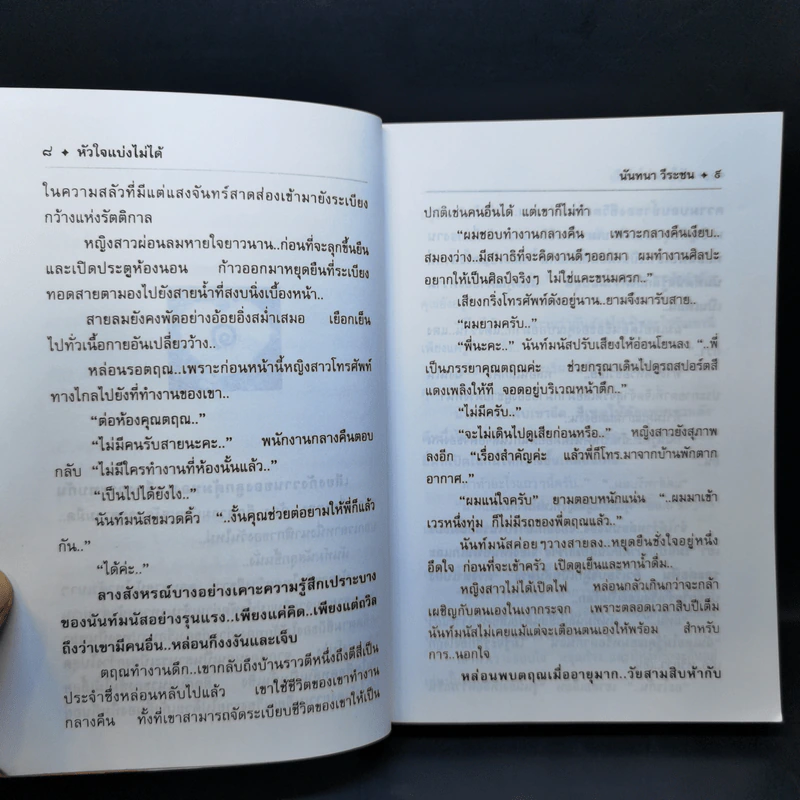 ๘ ✦ หัวใจแบ่งไม่ได้
ในความสลัวที่มีแต่แสงจันทร์สาดส่องเข้ามายังระเบียง
กว้างแห่งรัตติกาล
หญิงสาวผ่อนลมหายใจยาวนาน..ก่อนที่จะลุกขึ้นยืน
และเปิดประตูห้องนอน ก้าวออกมาหยุดยืนที่ระเบียง
ทอดสายตามองไปยังสายน้ำที่สงบนิ่งเบื้องหน้า..
สายลมยังคงพัดอย่างอ้อยอิ่งสม่ำเสมอ เยือกเย็น
ไปทั่วเนื้อกายอันเปลี่ยวว้าง..
หล่อนรอตฤณ..เพราะก่อนหน้านี้หญิงสาวโทรศัพท์
ทางไกลไปยังที่ทำงานของเขา..
“ต่อห้องคุณตฤณ..”
“ไม่มีคนรับสายนะคะ..” พนักงานกลางคืนตอบ
กลับ “ไม่มีใครทำงานที่ห้องนั้นแล้ว..”
“เป็นไปได้ยังไง..”
นันท์มนัสขมวดคิ้ว “..งั้นคุณช่วยต่อยามให้พี่ก็แล้ว
กัน..”
“ได้ค่ะ..”
ลางสังหรณ์บางอย่างเคาะความรู้สึกเปราะบาง
ของนันท์มนัสอย่างรุนแรง..เพียงแค่คิด..เพียงแต่ถวิล
ถึงว่าเขามีคนอื่น..หล่อนก็งงงันและเจ็บ
ตฤณทำงานดึก..เขากลับถึงบ้านราวตีหนึ่งถึงตีสี่เป็น
ประจำซึ่งหล่อนหลับไปแล้ว เขาใช้ชีวิตของเขาทำงาน
กลางคืน ทั้งที่เขาสามารถจัดระเบียบชีวิตของเขาให้เป็น
นันทนา วีระชน ✦ ๙
ปกติเช่นคนอื่นได้ แต่เขาก็ไม่ทำ
“ผมชอบทำงานกลางคืน เพราะกลางคืนเงียบ..
สมองว่าง..มีสมาธิที่จะคิดงานดีๆออกมา ผมทำงานศิลปะ
อยากให้เป็นศิลป์จริงๆ ไม่ใช่แคะขนมครก..”
เสียงกริ่งโทรศัพท์ดังอยู่นาน..ยามจึงมารับสาย..
“ผมยามครับ..”
“พี่นะคะ..” นันท์มนัสปรับเสียงให้อ่อนโยนลง “..พี่
เป็นภรรยาคุณตฤณค่ะ ช่วยกรุณาเดินไปดูรถสปอร์ตสี
แดงเพลิงให้ที จอดอยู่บริเวณหน้าตึก..”
“ไม่มีครับ..”
“จะไม่เดินไปดูเสียก่อนหรือ..” หญิงสาวยังสุภาพ
ลงอีก “เรื่องสำคัญค่ะ แล้วพี่ก็โทร.มาจากบ้านพักตาก
อากาศ..”
“ผมแน่ใจครับ” ยามตอบหนักแน่น “..ผมมาเข้า
เวรหนึ่งทุ่ม ก็ไม่มีรถของพี่ตฤณแล้ว..”
นันท์มนัสค่อยๆวางสายลง..หยุดยืนชั่งใจอยู่หนึ่ง
อึดใจ ก่อนที่จะเข้าครัว เปิดตู้เย็นและหาน้ำดื่ม..
หญิงสาวไม่ได้เปิดไฟ หล่อนกลัวเกินกว่าจะกล้า
เผชิญกับตนเองในเงากระจก เพราะตลอดเวลาสิบปีเต็ม
นันท์มนัสไม่เคยแม้แต่จะเตือนตนเองให้พร้อม สำหรับ
การ..นอกใจ
หล่อนพบตฤณเมื่ออายุมาก..วัยสามสิบห้ากับ